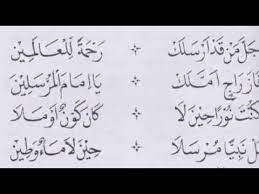 جَلَّ مَنْ قَدْ اَرْسَلَكْ ÷ رَحْمَةً لِلْعَالَمِيْنَ
فَازَ رَاجٍ اَمَّلَكْ ÷ يَا اِمَامَ الْمُرْسَلِيْنَ
كُنْتَ نُوْرًا حِيْنَ لَا ÷ كَانَ كَوْنٌ اَوْ مَلَا
ـلْ نَبِيًّا مُرْسَلَا ÷ حِيْنَ لَا مَاءٌ وَطِيْنَ